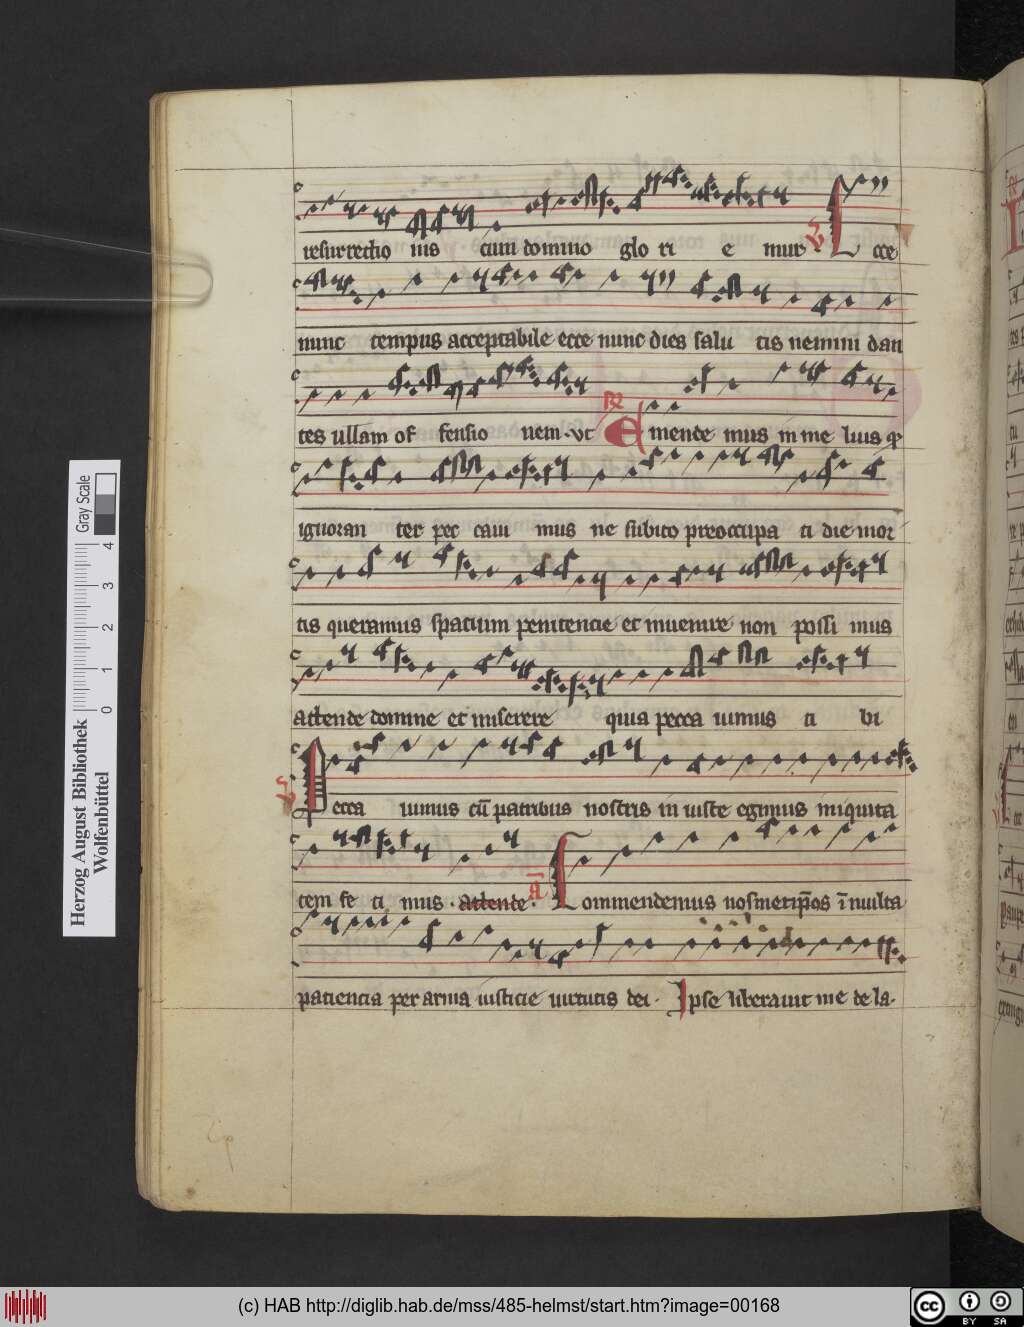 resurrectio nis cum domino glo ri e mur V Ecce
nunc tempus acceptabile ecce nunc dies salu tis nemini dan
tes ullam of fensio nem · vt R Emende mus in me lius q
ignoran ter pec caui mus ne subito preoccupa ti die mor
tis queramus spatium penitencie et inuenire non possi mus
attende domine et miserere quia pecca uimus ti bi
V Pecca uimus cu̅ patribus nostris in iuste egimus iniquita
tem fe ci mus · attende · A Commendemus nosmetip̅os i̅ multa
paciencia per arma iusticie uirtutis dei · Ipse liberauit me de la·
Herzog August Bibliothek
Wolfenbüttel
Gray Scale
0 1 2 3 4
(c) HAB http://diglib.hab.de/mss/485-helmst/start.htm?image=00168
cc BY SA